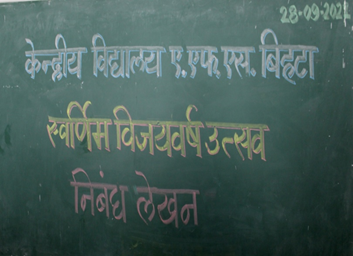 28-09-202
केन्द्रीय विद्यालय ए.एफ.एस. बिहटा
स्वर्णिम विजयवर्ष उत्सव
निबंध लेखन